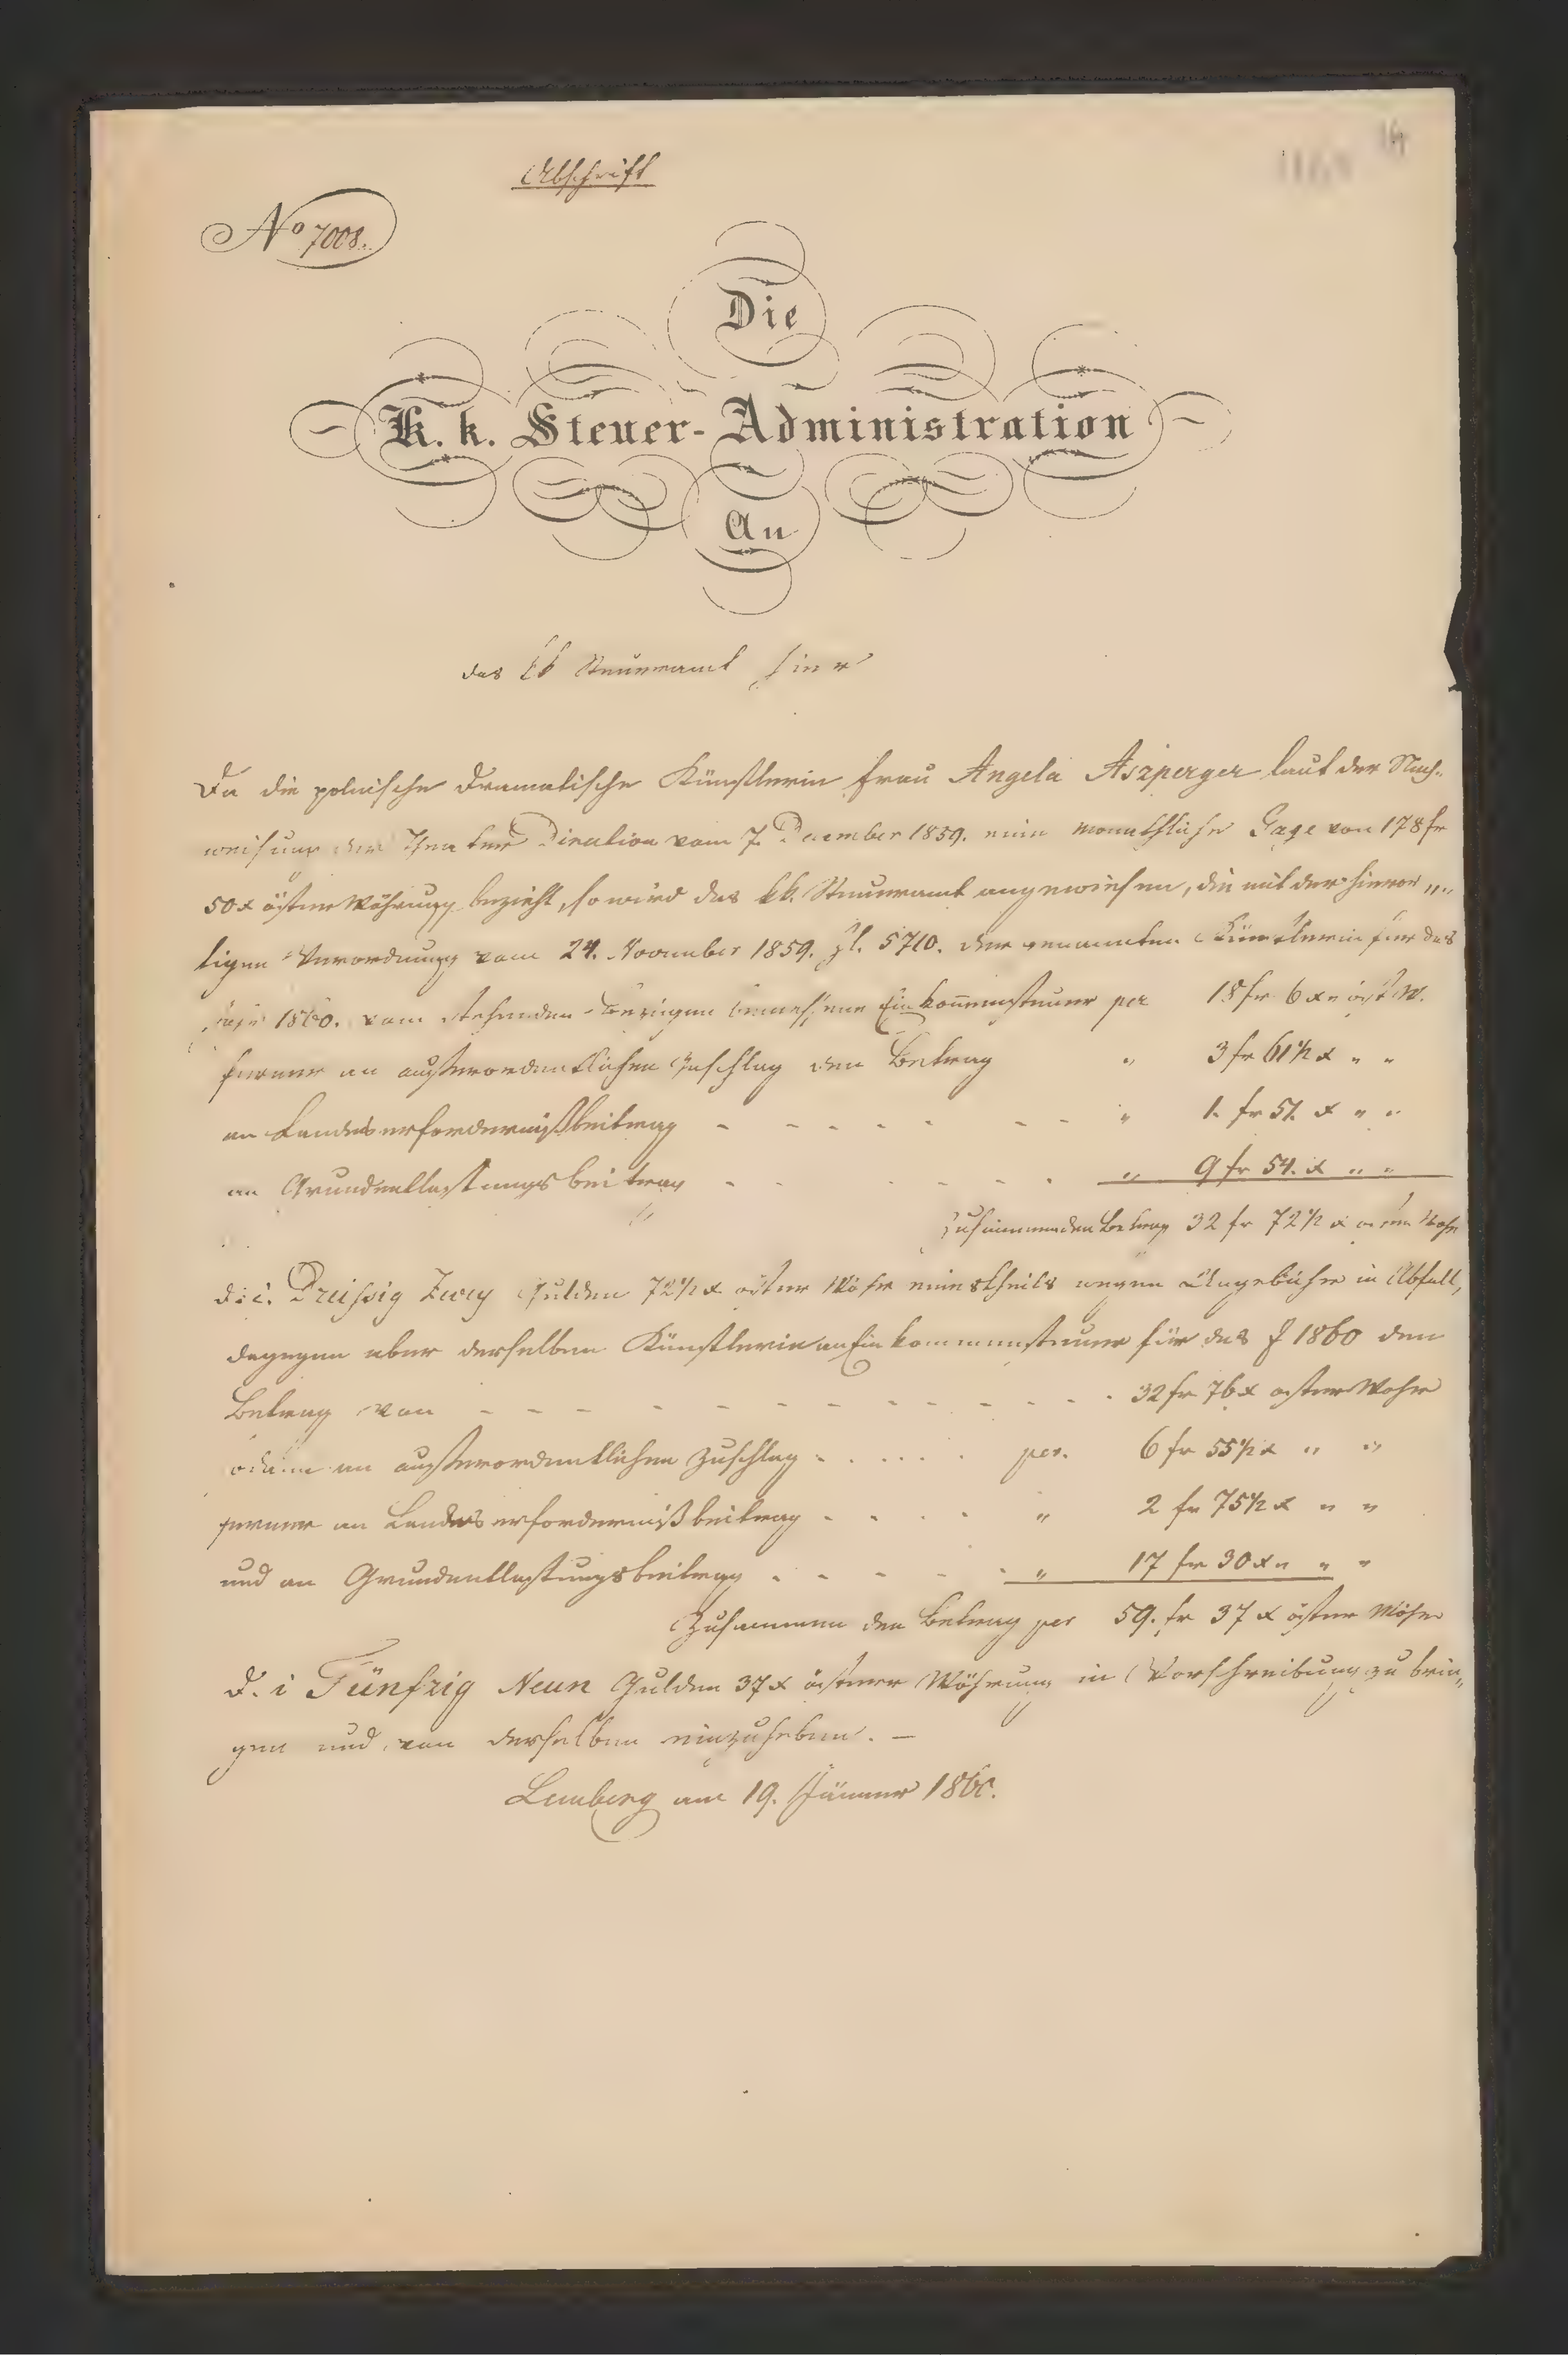 Abschrift
14
No 7008.
Die
K. k. Steuer-Administration
An
das kk Steueramt hier
Da die polnische Dramatische Künstlerin Frau Angela Aszperger laut der Nach-
weisung der Theater Direktion vom 7. Dezember 1859. eine monathliche Gage von 178 fr
50 x österr Währung bezieht, so wird das kk. Steueramt angewiesen, die mit der hieror„
tigen Verordnung vom 24. November 1859. Zl. 5710. der genannten Künstlerin für das
Jahr 1860. vom stehenden Bezügen bemessene Einkommensteuer per 18 fr 6 x öst W.
ferner an außerordentlichen Zuschlag den Betrag " 3 fr 61½ x " "
an Landeserfordernißbeitrag - - - - - - - " 1. fr 51. x " "
an Grundentlastungsbeitrag - - - - - - " 9 fr 54. x " "
Zusammen den Betrag 32 fr 72½ x österr Währ
d. i. Dreissig Zwey Gulden 72½ x österr Währ einestheils wegen Ungebühr in Abfall,
dagegen aber derselben Künstlerin an Einkommensteuer für das J 1860 den
Betrag von - - - - - - - - - - - 32 fr 76 x österr Währ
an außerordentlichen Zuschlag - . . . . . per. 6 fr 55½ x " "
ferner an Landeserfordernißbeitrag - - - - " 2 fr 75½ x " "
und an Grundentlastungsbeitrag - - - - - " 17 fr 30 x " " "
Zusammen den Betrag per 59. fr 37 x österr Währ
d. i Fünfzig Neun Gulden 37 x österr Währung in Vorschreibung zu brin„
gen und von derselben einzuheben. -
Lemberg am 19. Jänner 1860.